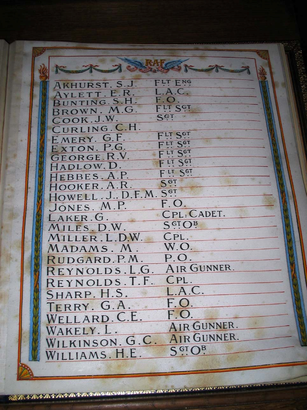 RAF
AKHURST, S.J. FLT ENG
AYLETT, E.R. L.A.C.
BUNTING, S.H. F.O.
BROWN, M.G. FLT SGT
COOK, J.W. SGT
CURLING, C.H.
EMERY, G.F. FLT SGT
EXTON, P.G. FLT SGT
GEORGE, R.V. FLT SGT
HADLOW, D. FLT SGT
HEBBES, A.P. FLT SGT
HOOKER, A.R. SGT
HOWELL, J.D.F.M. SGT
JONES, M.P. F.O.
LAKER, G. CPL. CADET.
MILES, D.W. SGT OB
MILLER, L.D.W. CPL.
MADAMS, M. W.O.
RUDGARD, P.M. P.O.
REYNOLDS, L.G. AIR GUNNER.
REYNOLDS, T.F. CPL.
SHARP, H.S. L.A.C.
TERRY, G.A. F.O.
WELLARD, C.E. F.O.
WAKELY, L. AIR GUNNER.
WILKINSON, G.C. AIR GUNNER.
WILLIAMS, H.E. SGT OB